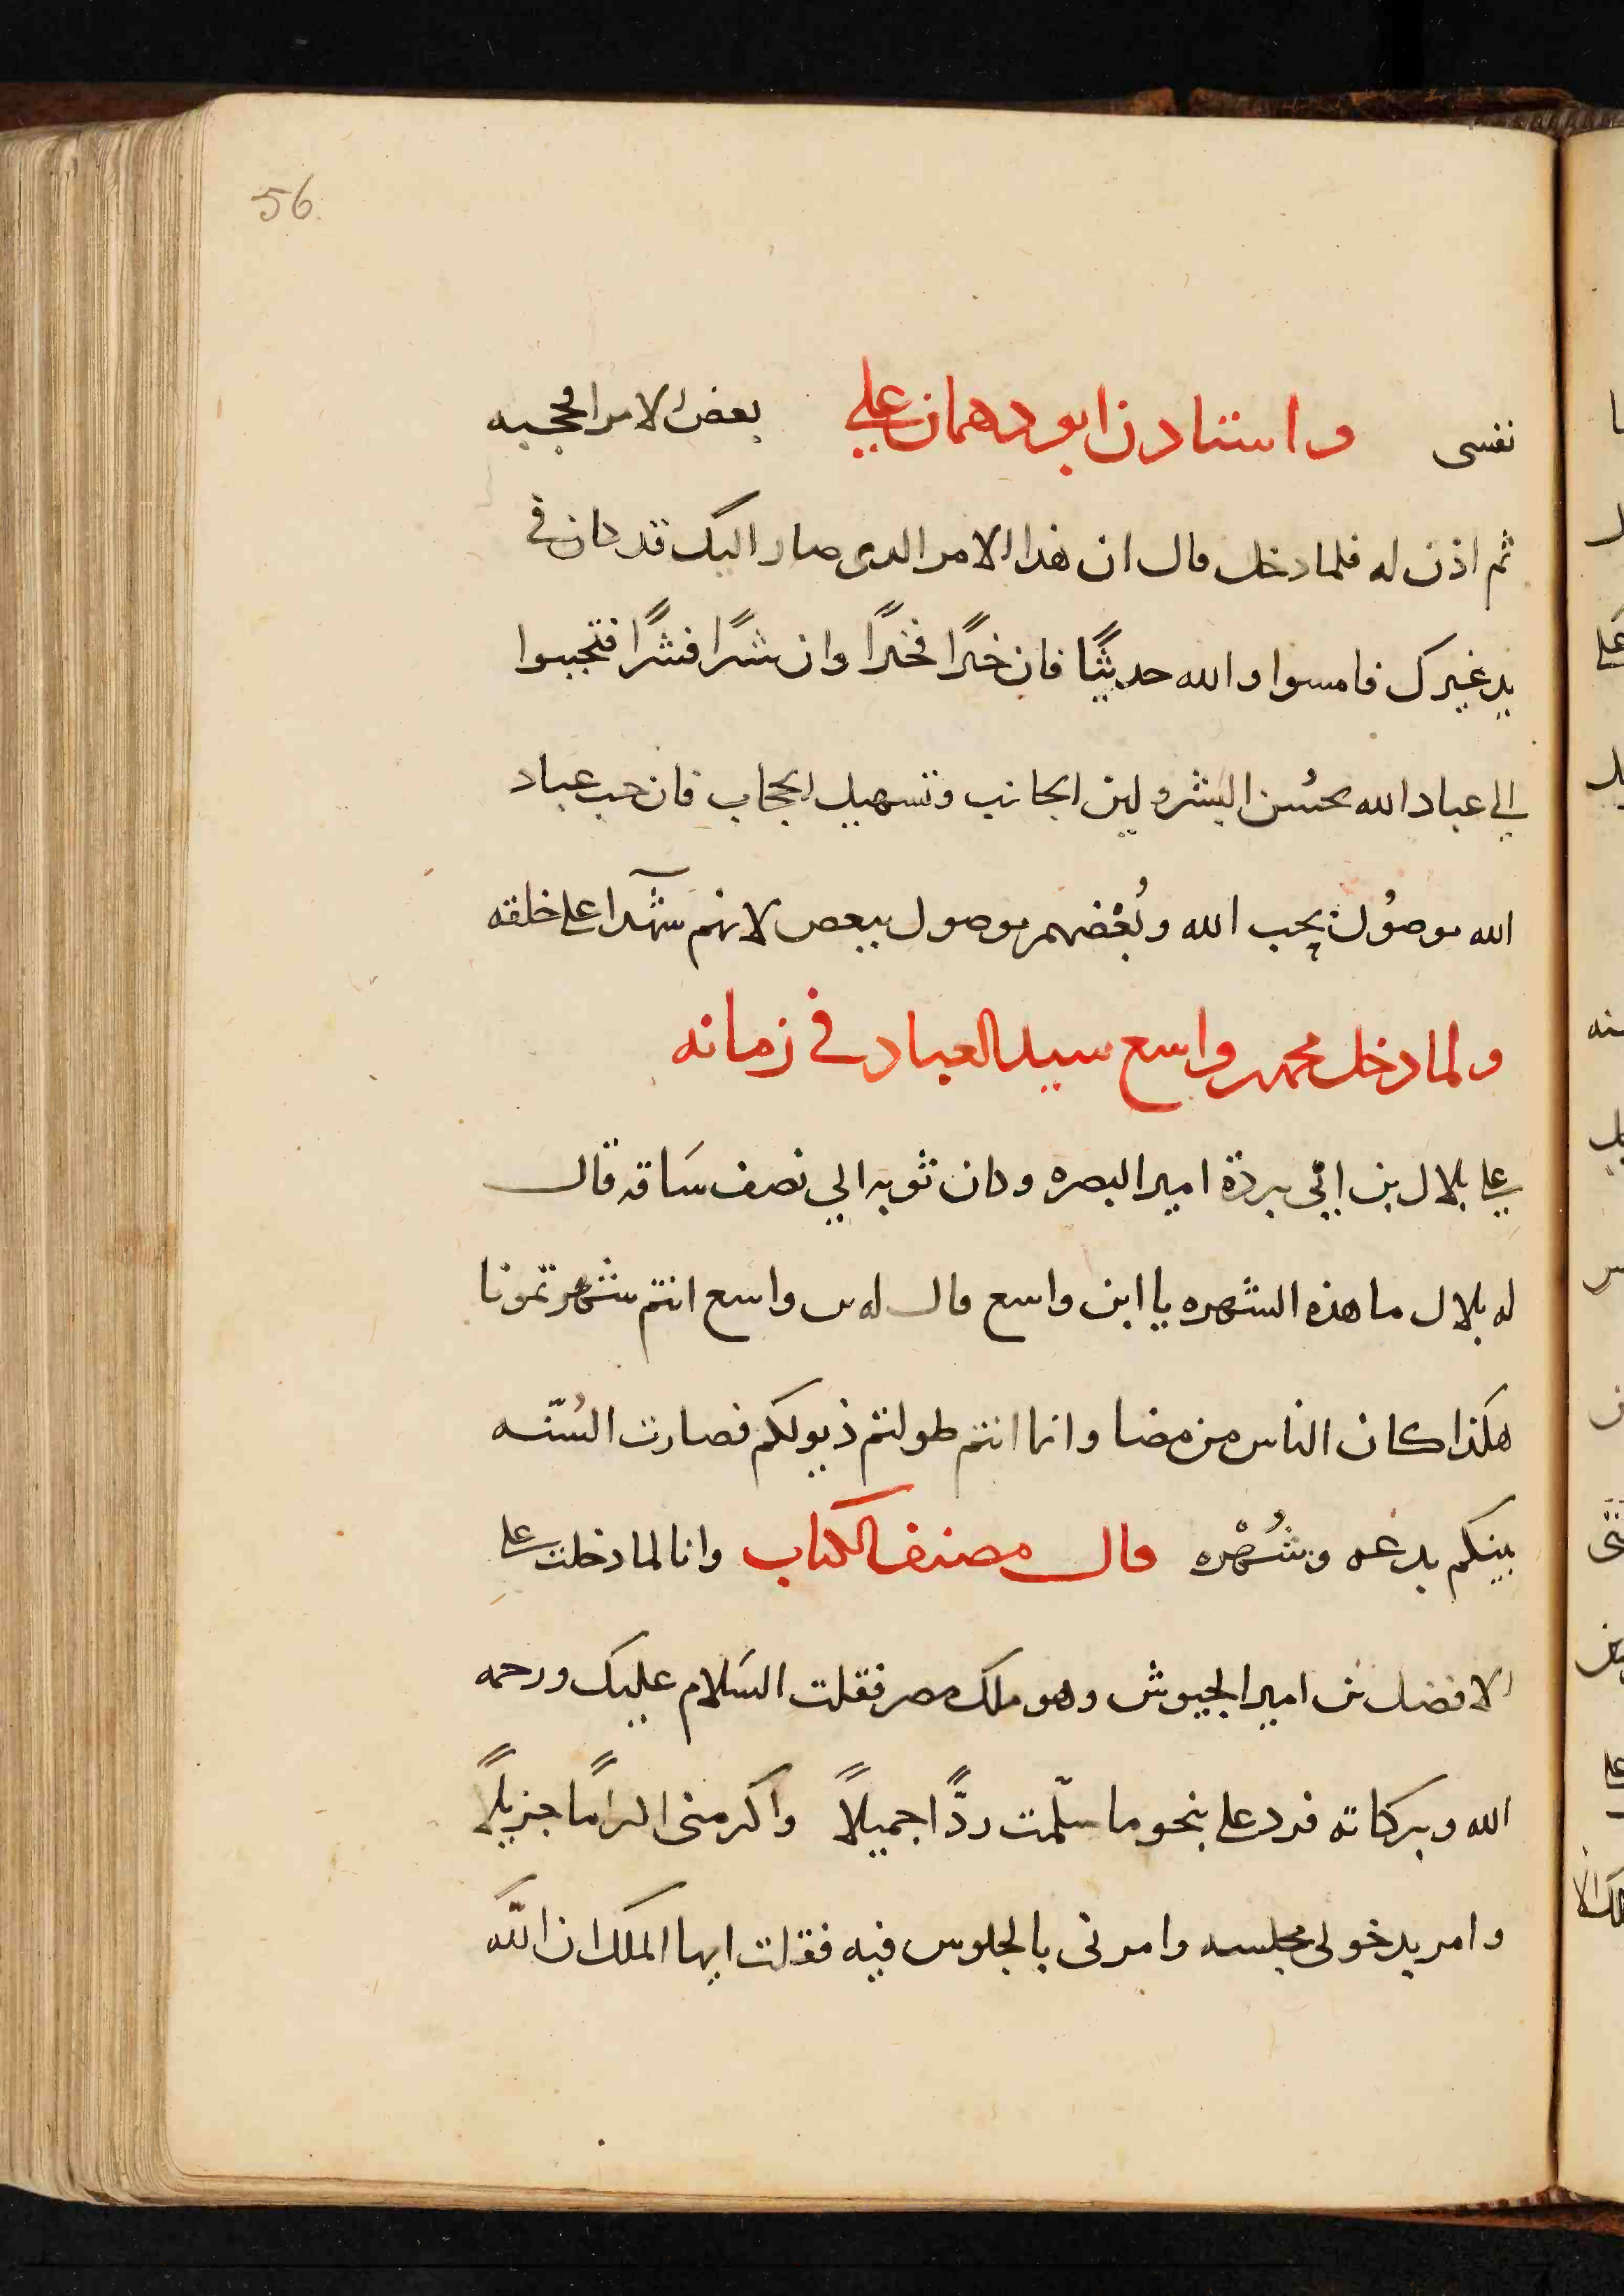 56
نفسى واستاذن ابو دهمان علي بعض الامرا فحجبه
ثم اذن له فلما دخل قال ان هذا الامر الدى صار اليك قد كان فى
يد غيرك فامسوا والله حديثًا فان خيرًا فخيرًا وان شرًا فشرًا فتحببوا
الي عباد الله بحُسن البشر ولين الجانب وتسهيل الحجاب فان حب عباد
الله موصُول بحب الله وبُغْضهم موصول ببعض لانهم شهدآ على خلقه
ولما دخل محمد واسع سيد العباد فى زمانه
علي بلال بن ابي بردة امير البصره وكان ثوبه الي نصف سَاقه قال
له بلال ما هذه الشهره يا ابن واسع قال له بن واسع انتم شهرتمونا
هكذا كان الناس من مضا وانما انتم طولتم ذيولكم فصارت السُنّه
بينكم بدعه وشُهْره قال مصنف الكتاب وانا لما دخلت علي
الافضل بن امير الجيوش وهو ملك مصر فقلت السَلام عليك ورحمه
الله وبركاته فرد على بنحو ما سلّمت ردًّا جميلًا واكرمنى اكرامًا جزيلًا
وامر بدخولى مجلسه وامرنى بالجلوس فيه فقلت ايها الملك ان اللّه